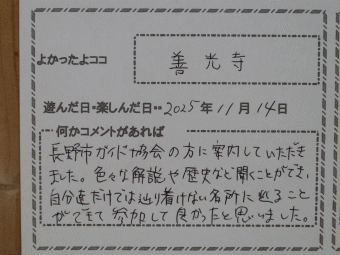 よかったよココ 善光寺
遊んだ日・楽しんだ日・・2025年11月14日
何かコメントがあれば
長野市ガイド協会の方に案内していただき
ました。色々な解説や歴史など聞くことができ、
自分達だけでは辿り着けない名所に巡ること
ができて参加して良かったと思いました。